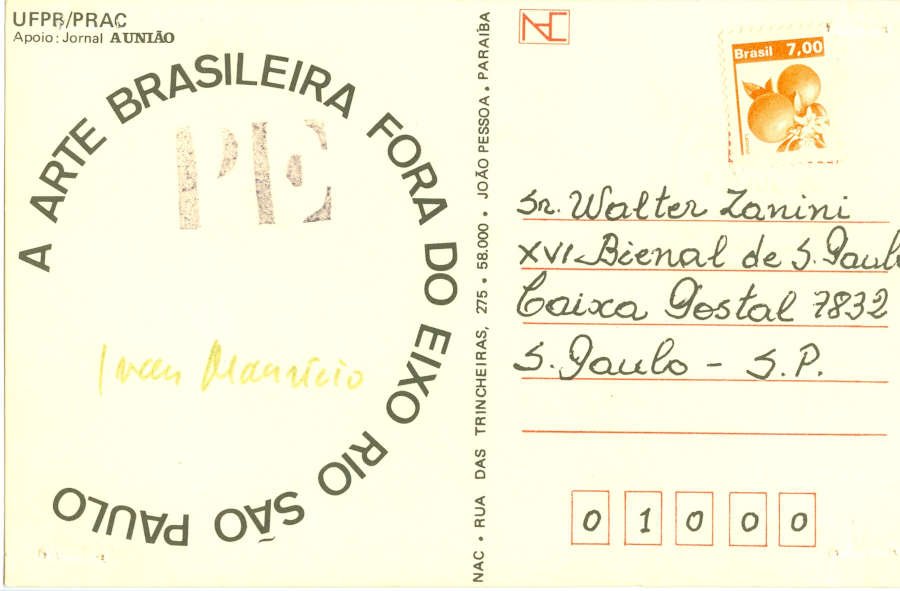 UFPB/PRAC
Apoio: Jornal A UNIÃO
A ARTE BRASILEIRA FORA DO EIXO RIO SÃO PAULO
PE
Ivan Maurício
NAC • RUA DAS TRINCHEIRAS, 275 • 58.000 • JOÃO PESSOA • PARAÍBA
NAC
Brasil 7,00
Sr. Walter Zanini
XVI-Bienal de S. Paulo
Caixa Postal 7832
S. Paulo - S.P.
0 1 0 0 0